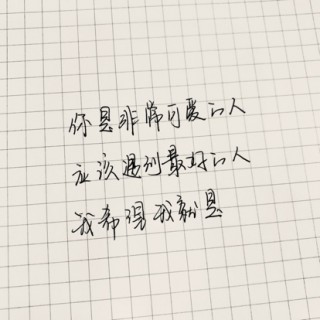 你是非常可爱的人
应该遇到最好的人
我希望我就是